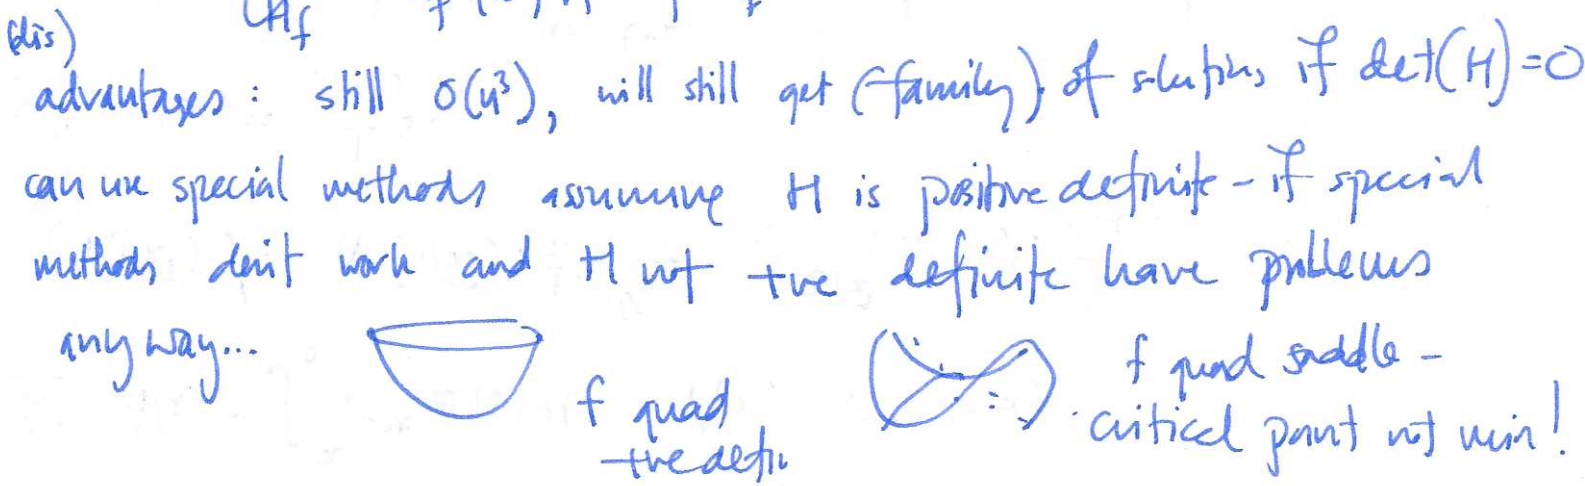 (dis)
advantages: still O(n³), will still get (family) of solutions if det(H)=0
can use special methods assuming H is positive definite - if special
methods don't work and H not +ve definite have problems
anyway...
f quad
+ve defn
f quad saddle -
critical point not min!